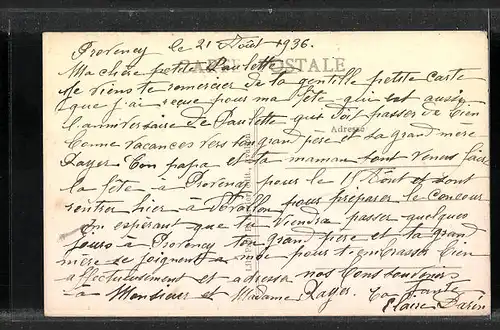 Provency le 21 Août 1936.
CARTE POSTALE
Ma chère petite Paulette
Je viens te remercier de la gentille petite carte
que j'ai reçue pour ma fête qui est aussi
l'anniversaire de Paulette qui doit passer de bien
Adresse
bonne vacances vers son grand père et sa grand mère
Rayer. Ton papa et ta maman sont venus faire
la fête à Provency pour le 15 Août et sont
rentrer hier à pour préparer le concour
en espérant que tu viendra passer quelques
jours à Provency ton grand père et ta grand
mère se joignent à moi pour t'embrasser bien
affectueusement et adresse nos bons souvenirs
à Monsieur et Madame Rayer. Ta tante
Claire